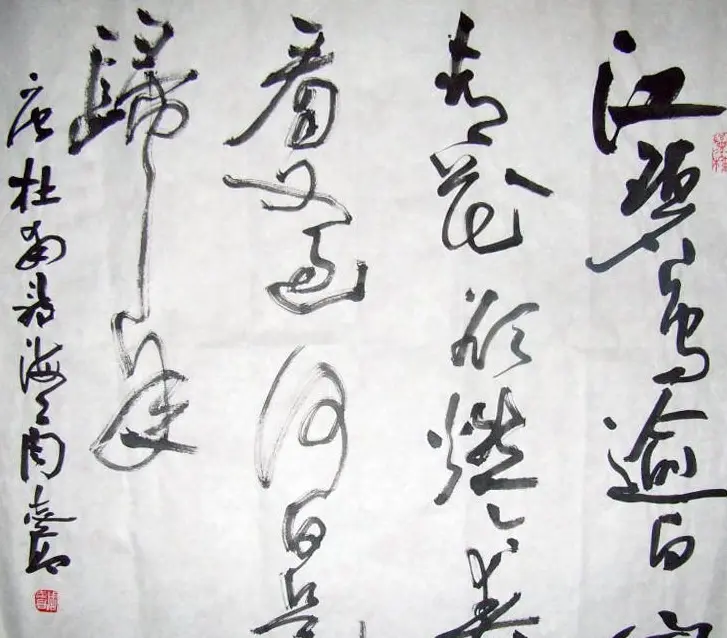 江碧鳥逾白山
青花欲燃今春
看又過何日是
歸年
唐杜甫詩海